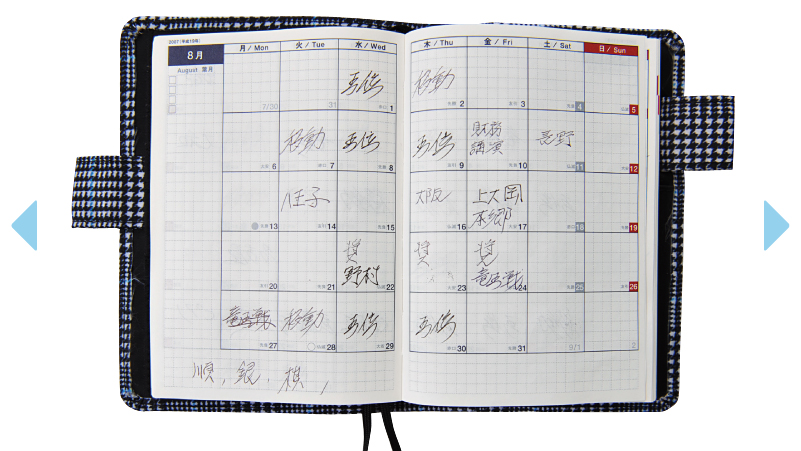 2007 (平成19年)
8月
August 葉月
月/Mon 火/Tue 水/Wed 木/Thu 金/Fri 土/Sat 日/Sun
王位 移動
7/30 31 1 2 3 4 5
移動 王位 王位 財務 長野
講演
6 7 8 9 10 11 12
王子 大阪 上大岡
本郷
13 14 15 16 17 18 19
野村 竜王戦
20 21 22 23 24 25 26
竜王戦 移動 王位 王位
27 28 29 30 31 9/1 2
順, 銀, 棋,